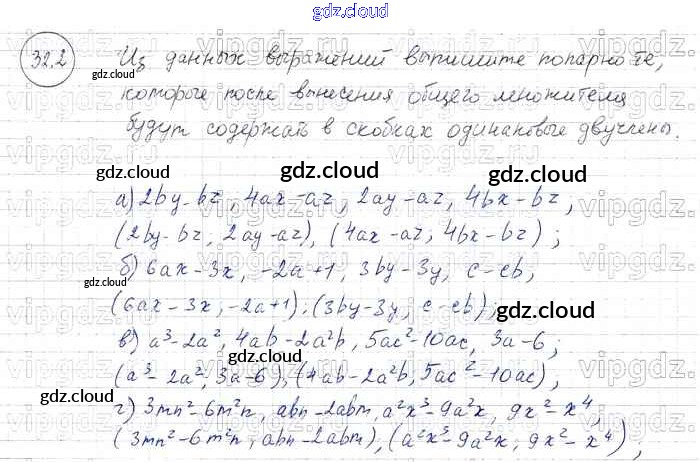 gdz.cloud
32.2 Из данных выражений выпишите попарно те,
которые после вынесения общего множителя
будут содержать в скобках одинаковые двучлены.
а) 2by-bz, 4ax-az, 2ay-az, 4bx-bz,
(2by-bz, 2ay-az), (4ax-az, 4bx-bz);
б) 6ax-3x, -2a+1, 3by-3y, c-cb,
(6ax-3x, -2a+1), (3by-3y, c-cb);
в) a³-2a², 4ab-2a²b, 5ac²-10ac, 3a-6;
(a³-2a², 3a-6), (4ab-2a²b, 5ac²-10ac),
г) 3mn²-6m²n, abn-2abm, a²x³-9a²x, 9x²-x⁴,
(3mn²-6m²n, abn-2abm), (a²x³-9a²x, 9x²-x⁴),